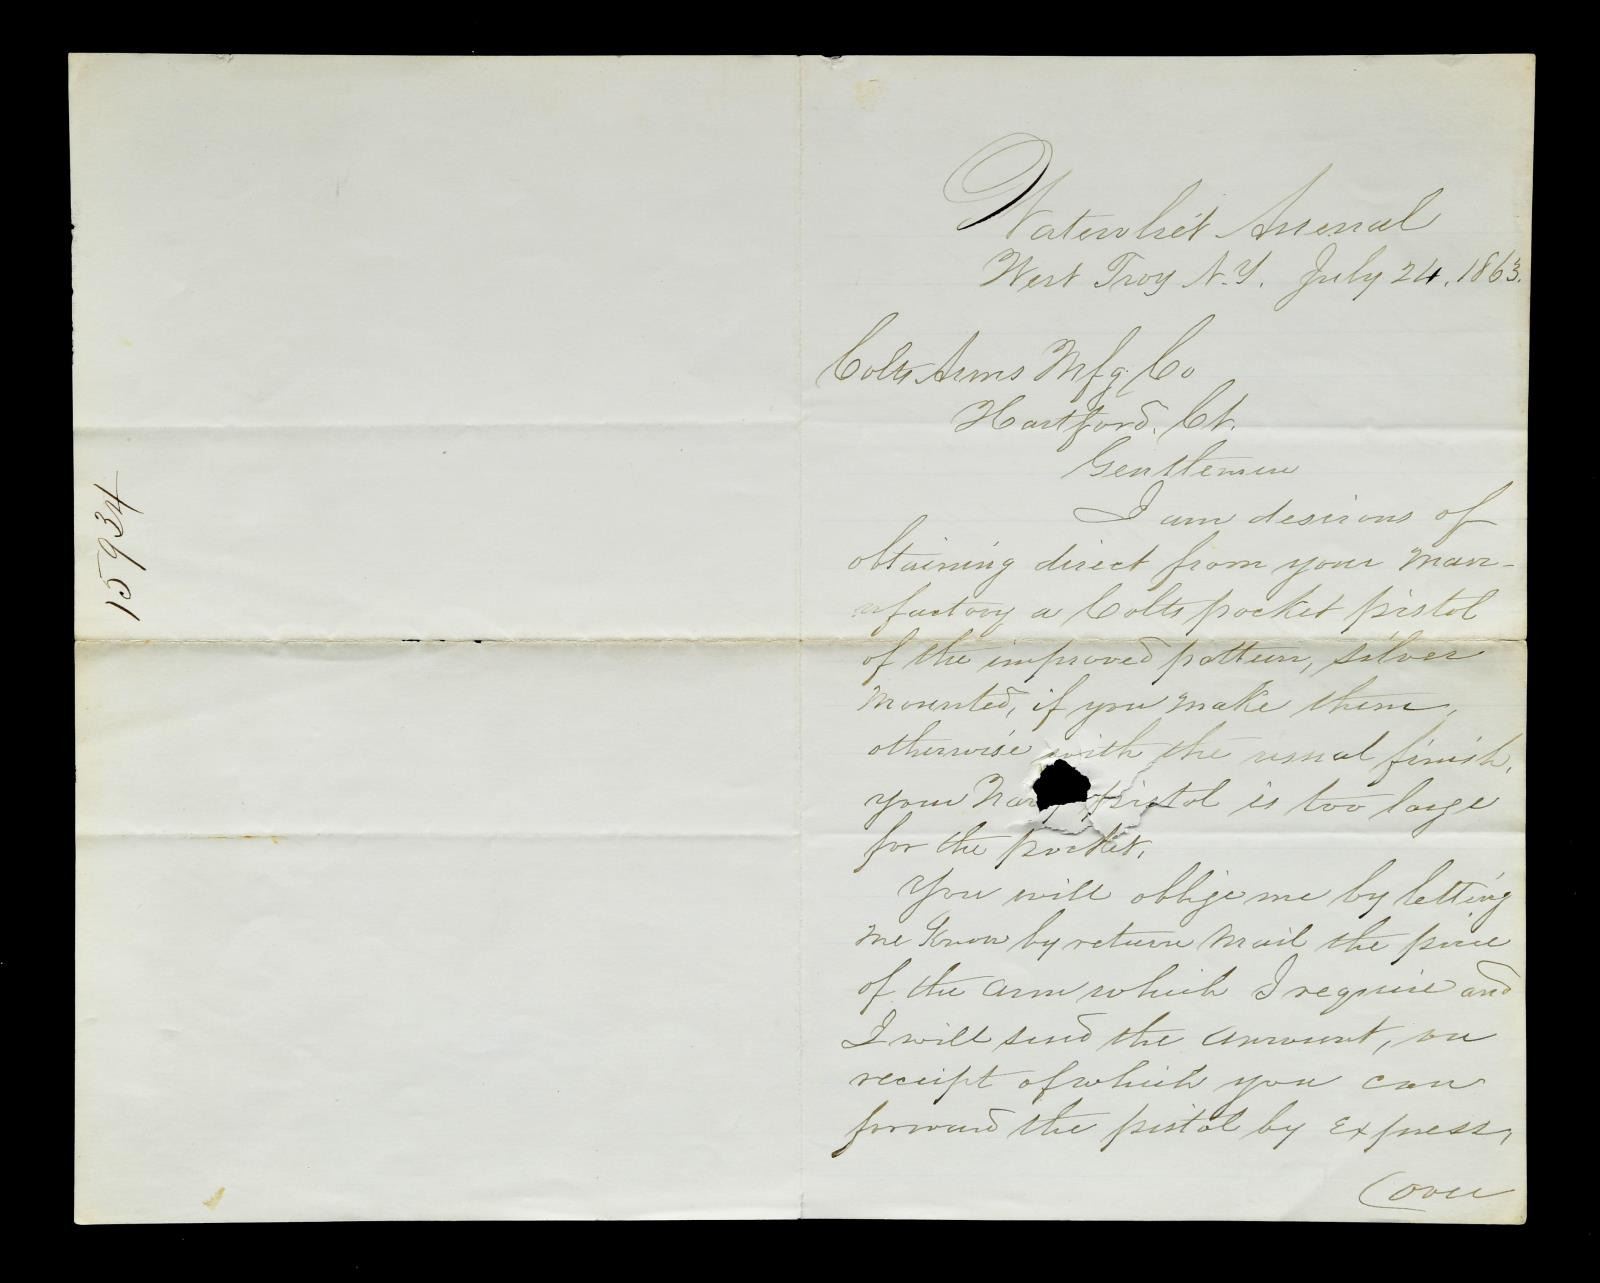 15934
Watervliet Arsenal
West Troy N.Y. July 24. 1863.
Colts Arms Mfg. Co
Hartford. Ct.
Gentlemen
I am desirous of
obtaining direct from your Man-
ufactory a Colts pocket pistol
of the improved pattern, silver
Mounted, if you make them,
otherwise with the usual finish,
your Navy pistol is too large
for the pocket.
You will oblige me by letting
me know by return Mail the price
of the arm which I require and
I will send the amount, on
receipt of which you can
forward the pistol by Express,
(over